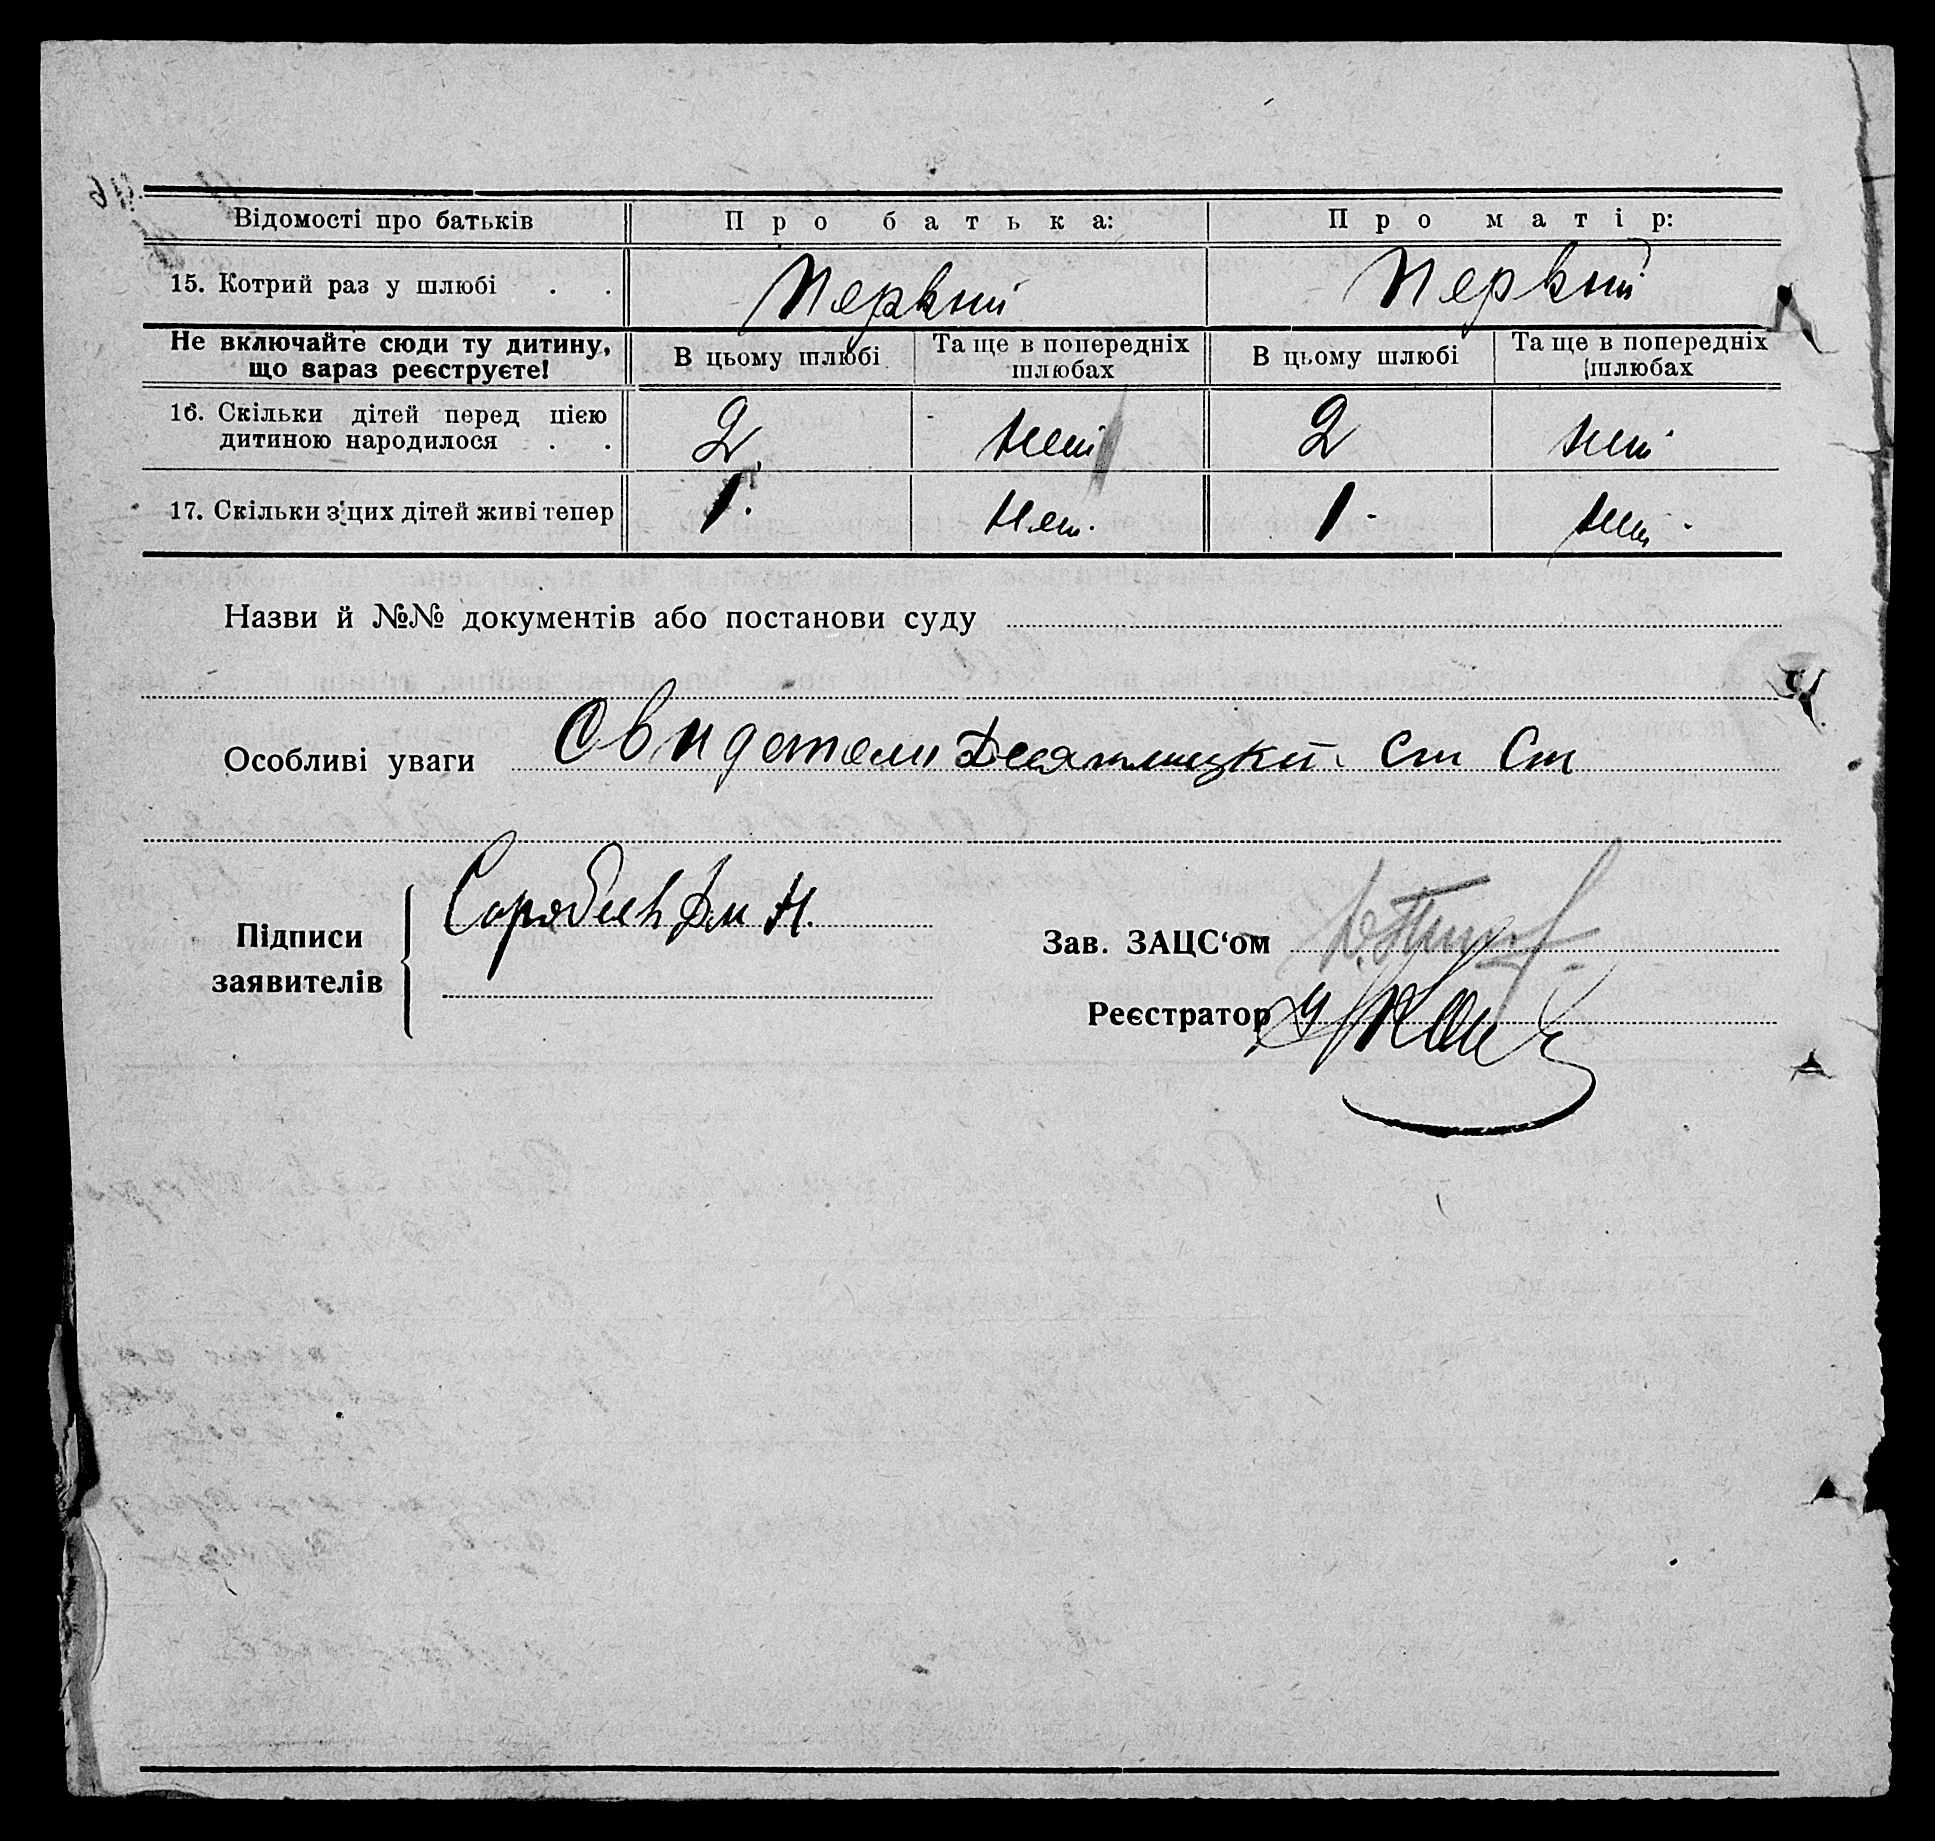 Відомості про батьків Про батька: Про матір:
15. Котрий раз у шлюбі . . Первый Первый
Не включайте сюди ту дитину, що вараз реєструєте! В цьому шлюбі Та ще в попередніх шлюбах В цьому шлюбі Та ще в попередніх шлюбах
16. Скільки дітей перед цією дитиною народилося . . 2 нет 2 нет
17. Скільки з цих дітей живі тепер 1. нет. 1 - нет -
Назви й №№ документів або постанови суду
Особливі уваги Свидетели Ст Ст
Підписи заявителів
Зав. ЗАЦС‘ом
Реєстратор